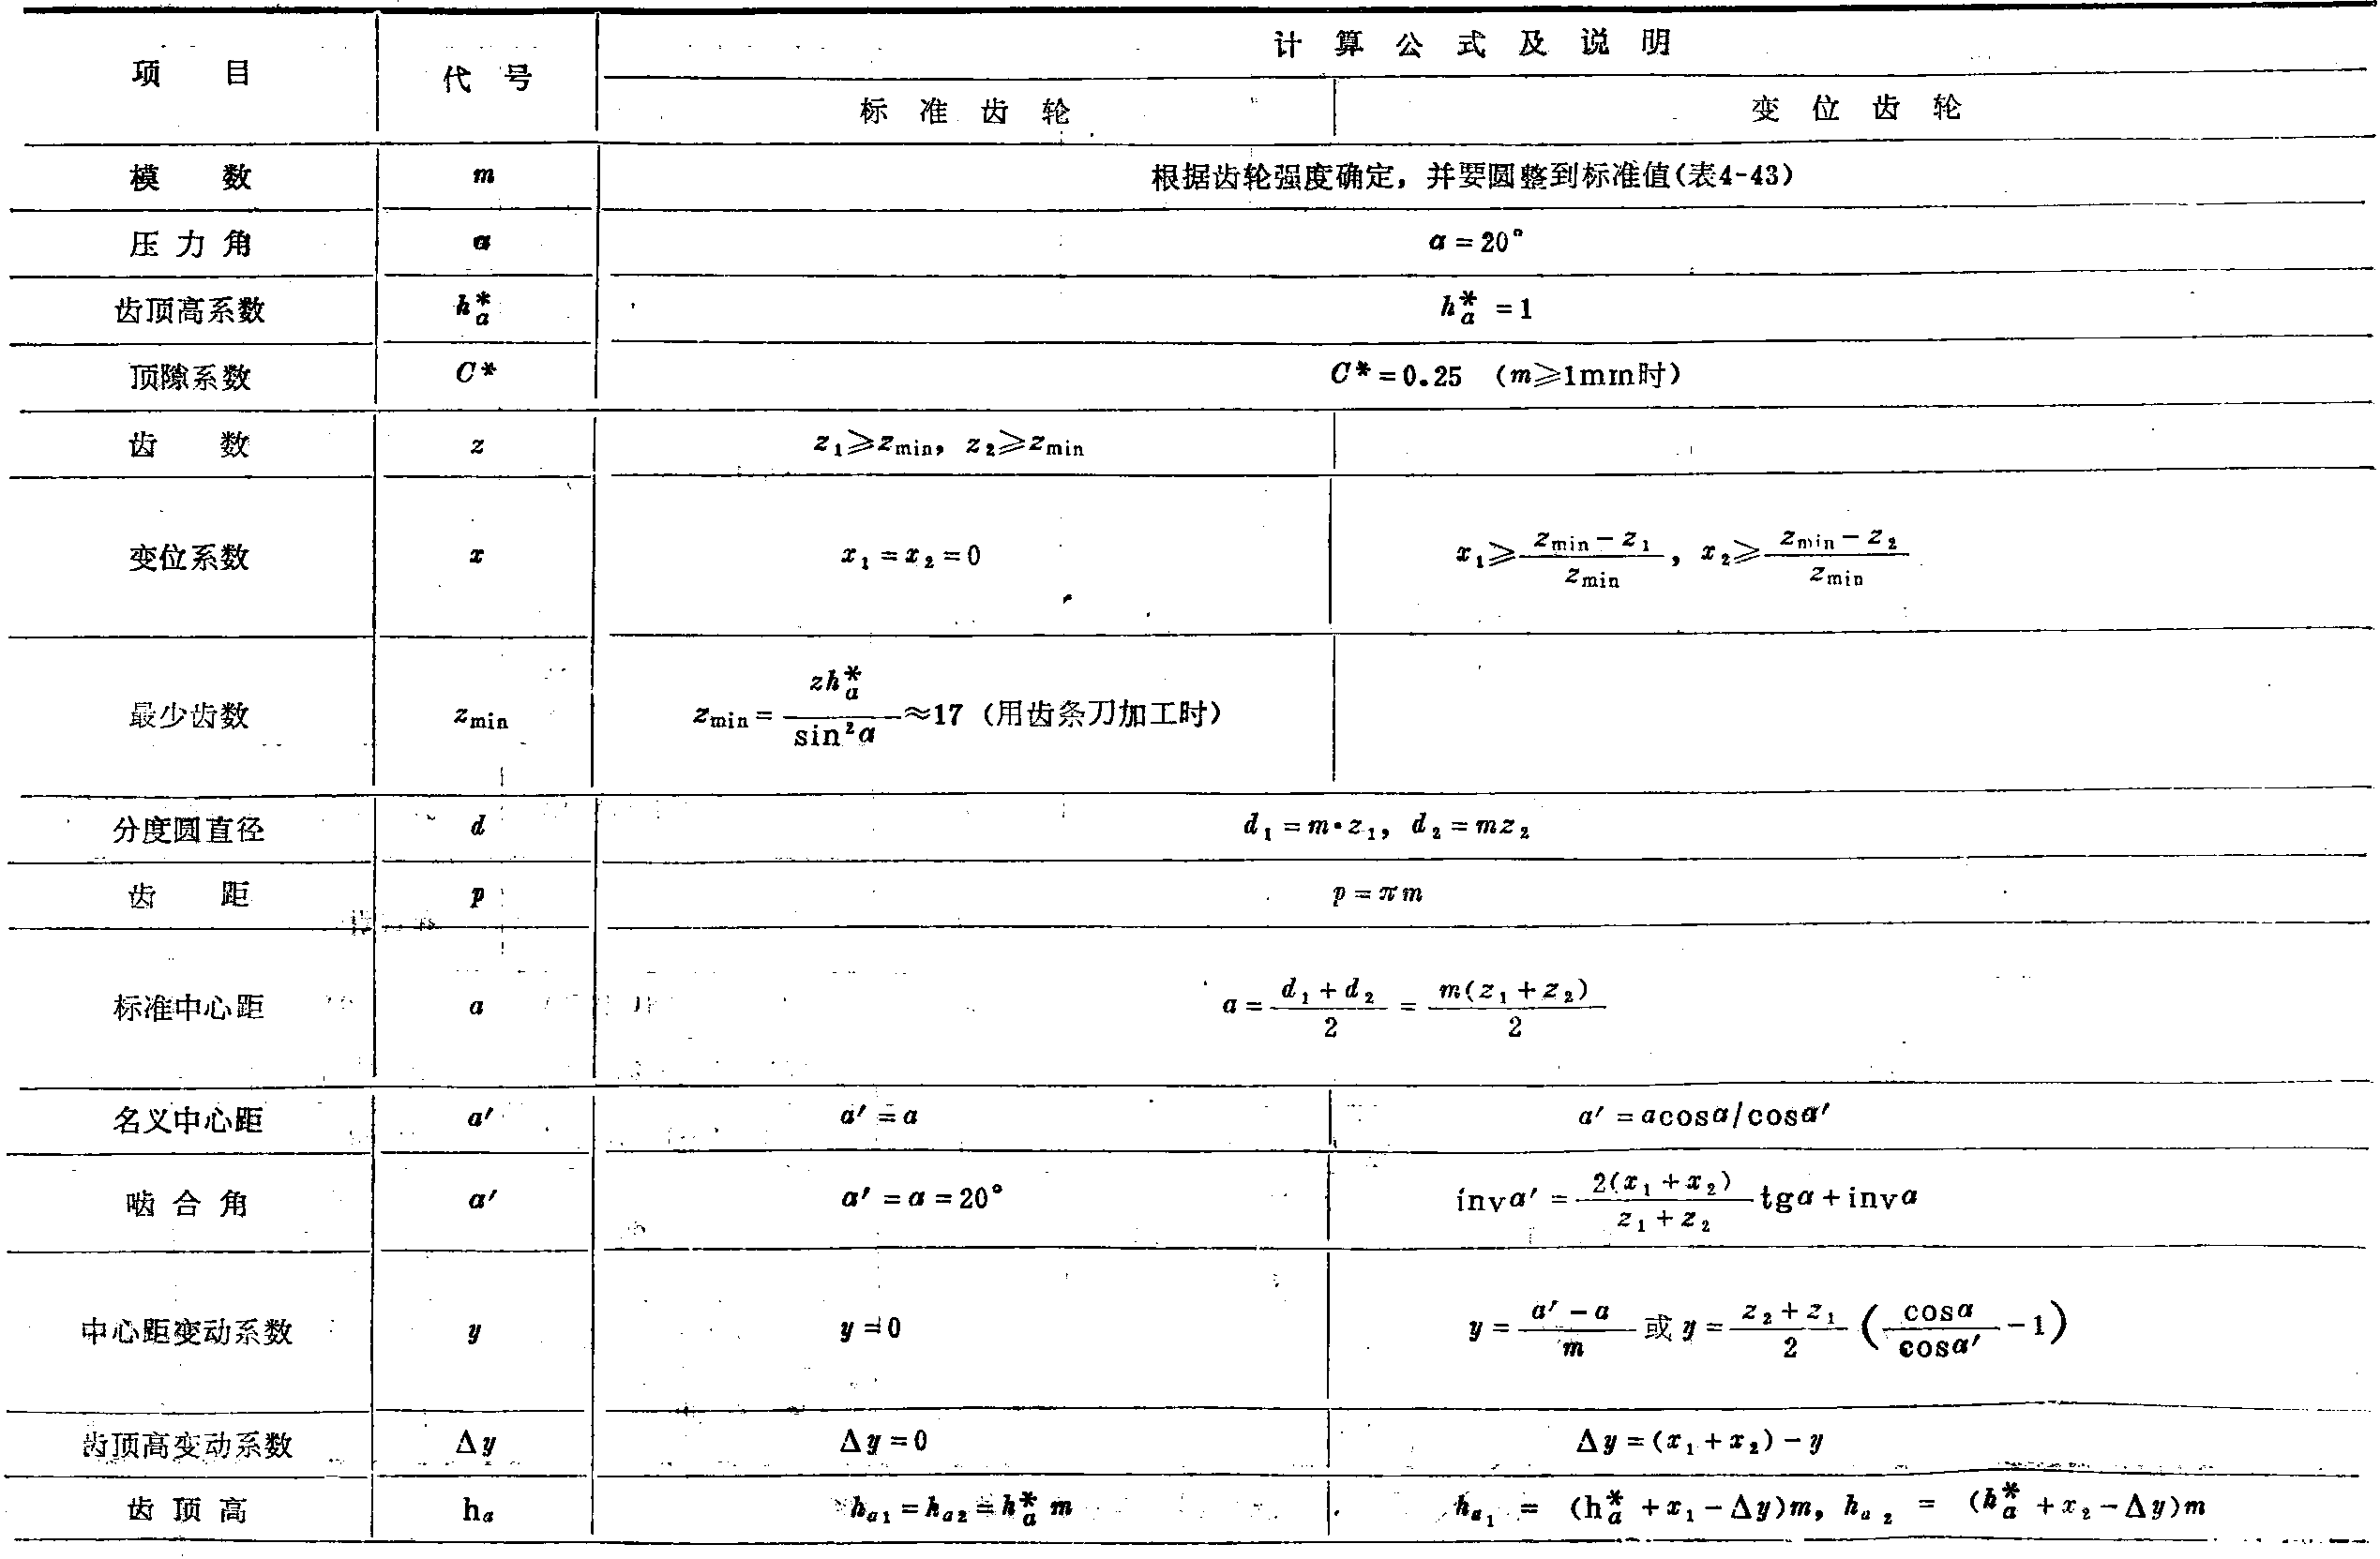 项 目 代 号 计 算 公 式 及 说 明
标 准 齿 轮 变 位 齿 轮
模 数 m 根据齿轮强度确定，并要圆整到标准值(表4-43)
压 力 角 α α = 20°
齿顶高系数 h*a h*a = 1
顶隙系数 C* C* = 0.25 (m≥1mm时)
齿 数 z z1≥zmin, z2≥zmin
变位系数 x x1 = x2 = 0 x1≥(zmin − z1)/zmin, x2≥(zmin − z2)/zmin
最少齿数 zmin zmin = zh*a/sin²α ≈17 (用齿条刀加工时)
分度圆直径 d d1 = m·z1, d2 = mz2
齿 距 p p = πm
标准中心距 a a = (d1 + d2)/2 = m(z1 + z2)/2
名义中心距 a′ a′ = a a′ = acosα/cosα′
啮 合 角 α′ α′ = α = 20° invα′ = 2(x1 + x2)/(z1 + z2) tgα + invα
中心距变动系数 y y = 0 y = (a′ − a)/m 或 y = (z2 + z1)/2 (cosα/cosα′ − 1)
齿顶高变动系数 Δy Δy = 0 Δy = (x1 + x2) − y
齿 顶 高 ha ha1 = ha2 = h*a m ha1 = (h*a + x1 − Δy)m, ha2 = (h*a + x2 − Δy)m